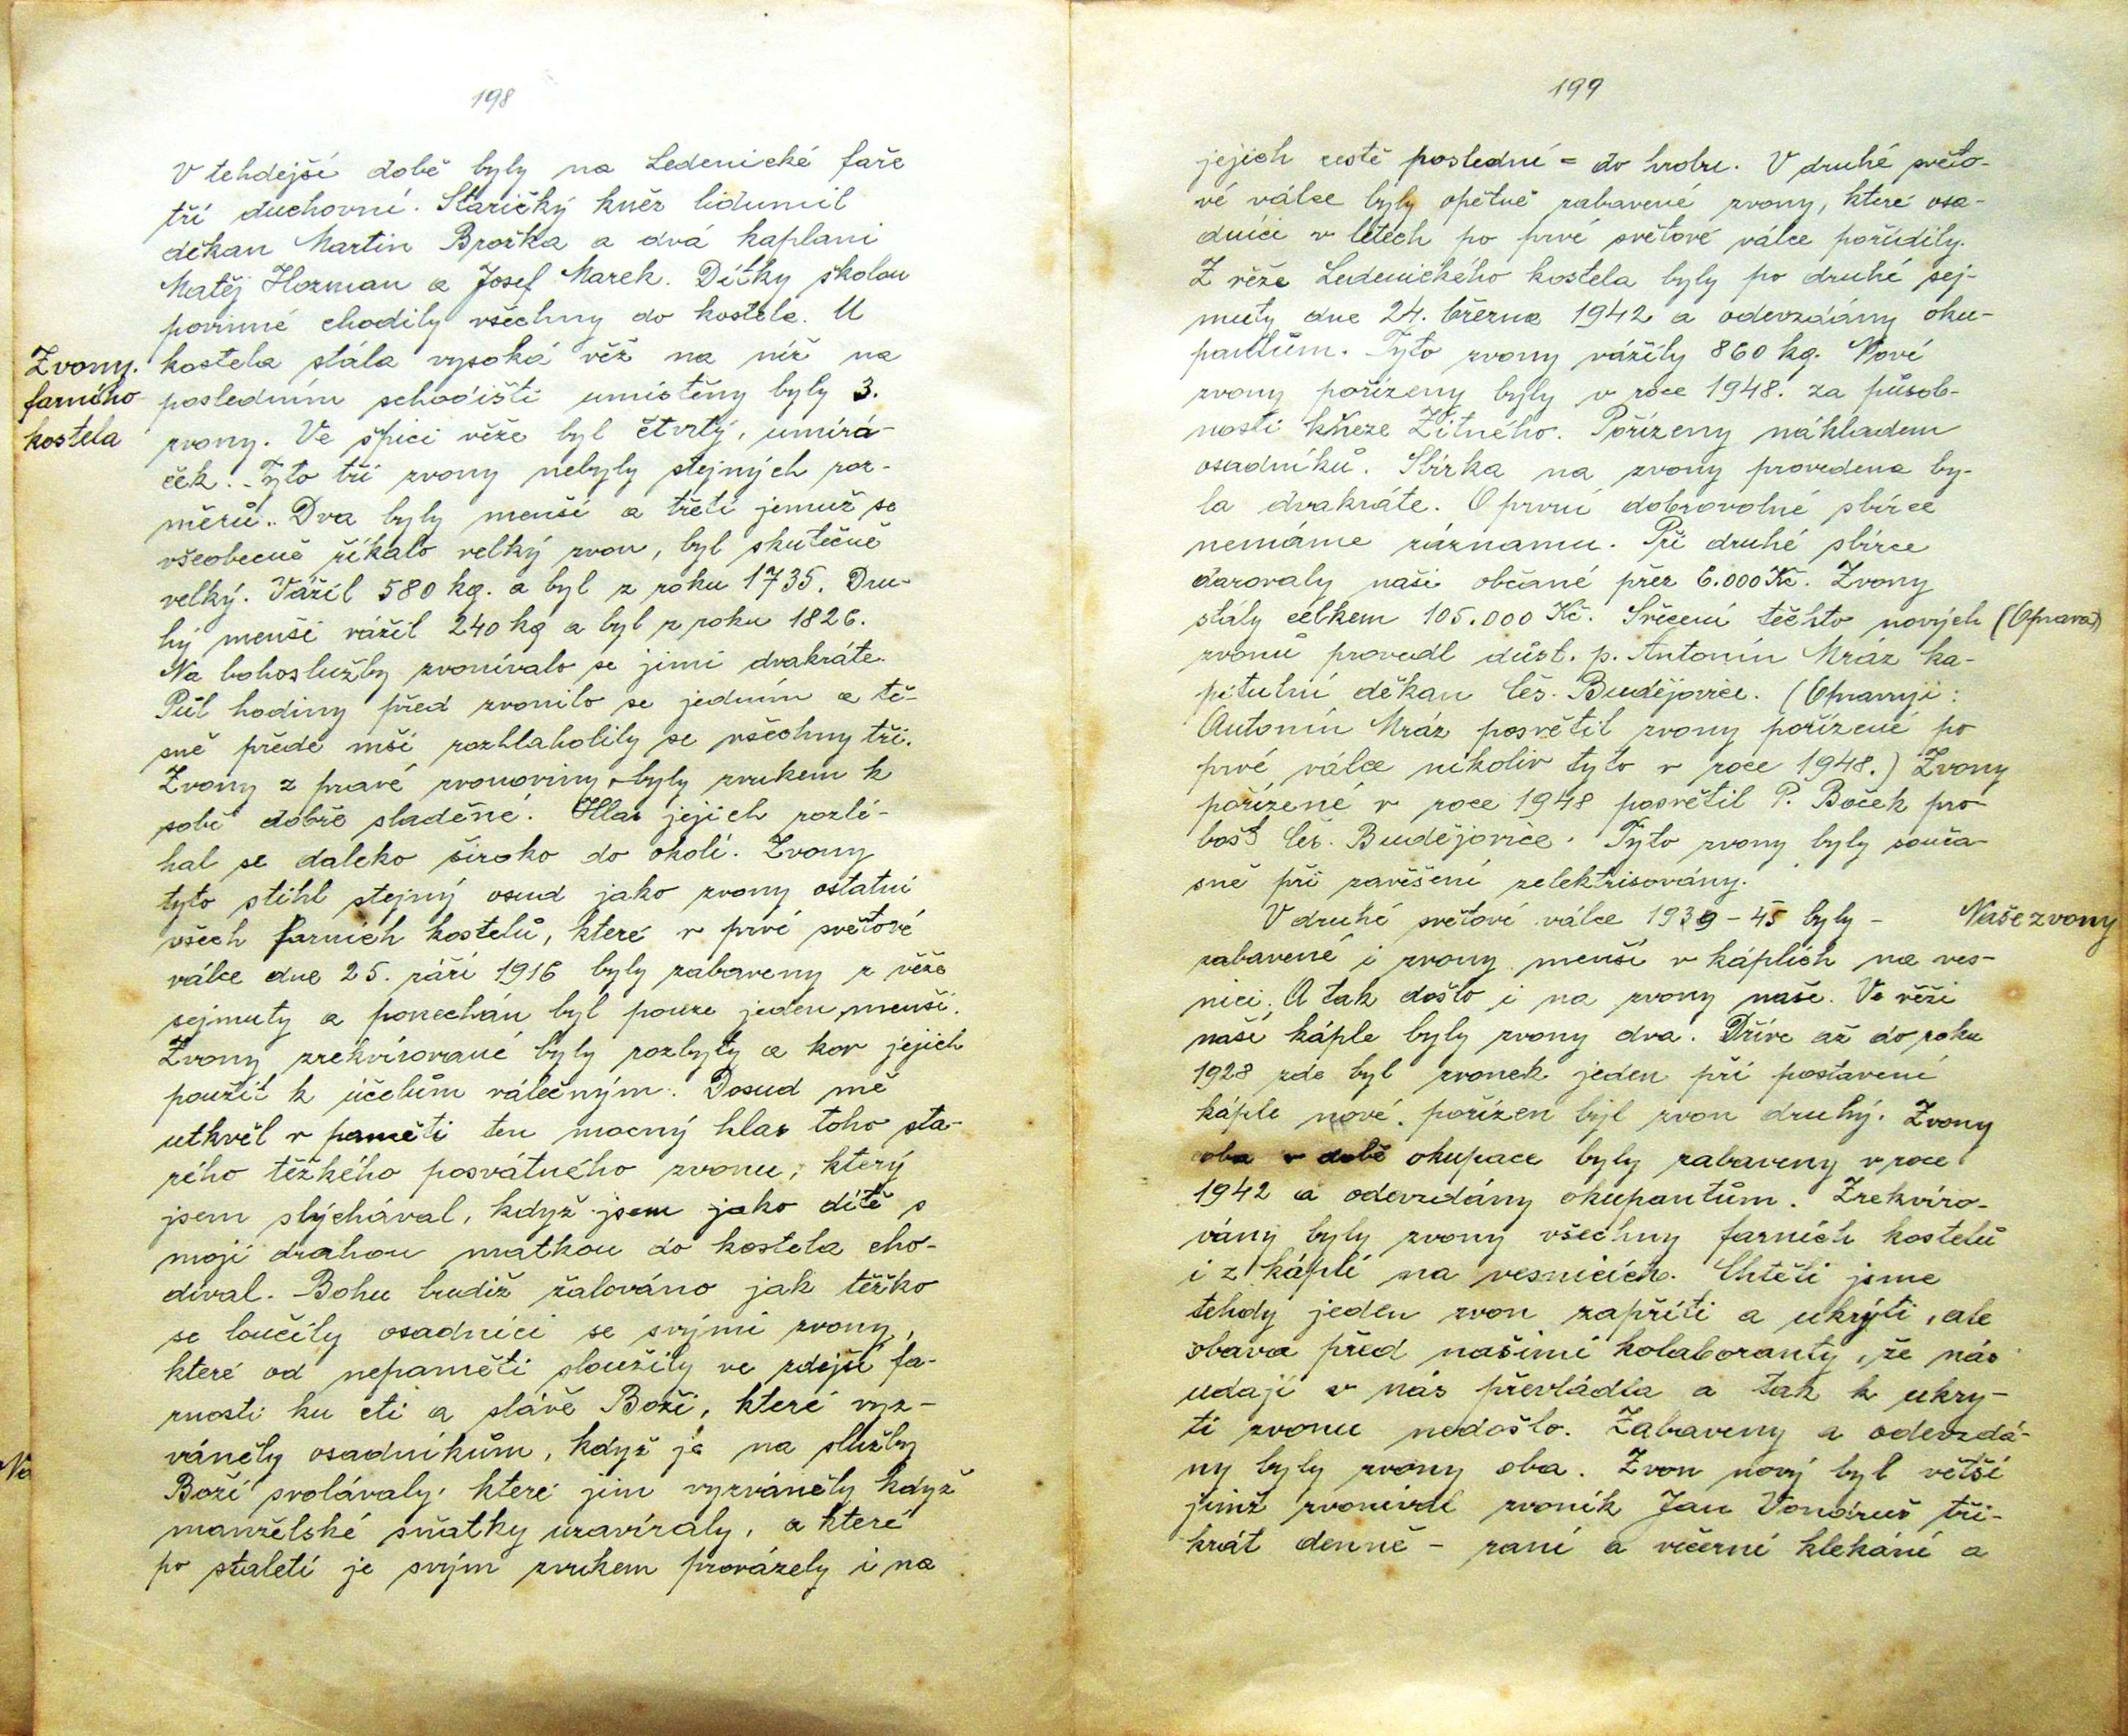 198
V tehdejší době byly na Ledenické faře
tří duchovní. Staričký kněz lidumil
děkan Martin Brožka a dvá kaplani
Matěj Hozman a Josef Marek. Dítky školou
povinné chodily všechny do kostela. U
Zvony. kostela stála vysoká věž na níž na
farního posledním schodišti umístěny byly 3.
kostela zvony. Ve špici věže byl čtvrtý, umírá-
ček. Tyto tři zvony nebyly stejných roz-
měrů. Dva byly menší a třetí jemuž se
všeobecně říkalo velký zvon, byl skutečně
velký. Vážil 580 kg. a byl z roku 1735. Dru-
hý menší vážil 240 kg a byl z roku 1826.
Na bohoslužby zvonívalo se jimi dvakráte.
Půl hodiny před zvonilo se jedním a tě-
sně přede mší rozhlaholily se všechny tři.
Zvony z pravé zvonoviny byly zvukem k
sobě dobře sladěné. Hlas jejich rozlé-
hal se daleko široko do okolí. Zvony
tyto stihl stejný osud jako zvony ostatní
všech farních kostelů, které v prvé světové
válce dne 25. září 1916 byly zabaveny z věže
sejmuty a ponechán byl pouze jeden menší.
Zvony zrekvírované byly rozbyty a kov jejich
použit k účelům válečným. Dosud mě
utkvěl v paměti ten mocný hlas toho sta-
rého těžkého posvátného zvonu, který
jsem slýchával, když jsem jako dítě s
moji drahou matkou do kostela cho-
díval. Bohu budiž žalováno jak těžko
se loučily osadníci se svými zvony,
které od nepaměti sloužily ve zdejší fa-
rnosti ku cti a slávě Boží, které vyz-
váněly osadníkům, když je na služby
Boží svolávaly, které jim vyzváněly když
manželské sňatky uzavíraly, a které
po staletí je svým zvukem provázely i na
199
jejich cestě poslední = do hrobu. V druhé světo-
vé válce byly opětně zabavené zvony, které osa-
dníci v létech po prvé světové válce pořídily.
Z věže Ledenického kostela byly po druhé sej-
muty dne 24. března 1942 a odevzdány oku-
pantům. Tyto zvony vážily 860 kg. Nové
zvony pořízeny byly v roce 1948. za působ-
nosti kněze Žitného. Pořízeny nákladem
osadníků. Sbírka na zvony provedena by-
la dvakráte. O první dobrovolné sbírce
nemáme záznamu. Při druhé sbírce
darovaly naši občané přez 6.000 Kč. Zvony
stály celkem 105.000 Kč. Svěcení těchto nových (Oprava)
zvonů provedl důst. p. Antonín Mráz ka-
pitulní děkan Čes. Budějovice. (Opravuji:
Antonín Mráz posvětil zvony pořízené po
prvé válce nikoliv tyto v roce 1948.) Zvony
pořízené v roce 1948 posvětil P. Boček pro-
bošt Čes. Budějovice. Tyto zvony byly souča-
sně při zavěšení zelektrisovány.
V druhé světové válce 1939-45 byly - Naše zvony
zabavené i zvony menší v káplích na ves-
nici. A tak došlo i na zvony naše. Ve věži
naší káple byly zvony dva. Dříve až do roku
1928 zde byl zvonek jeden při postavení
káple nové. pořízen byl zvon druhý. Zvony
oba v době okupace byly zabaveny v roce
1942 a odevzdány okupantům. Zrekvíro-
vány byly zvony všechny farních kostelů
i z káplí na vesnicích. Chtěli jsme
tehdy jeden zvon zapříti a ukrýti, ale
obava před našimi kolaboranty, že nás
udají v nás převládla a tak k ukry-
tí zvonu nedošlo. Zabaveny a odevzdá-
ny byly zvony oba. Zvon nový byl větší
jímž zvonívál zvoník Jan Vondruš tři-
krát denně - raní a večerní klekání a